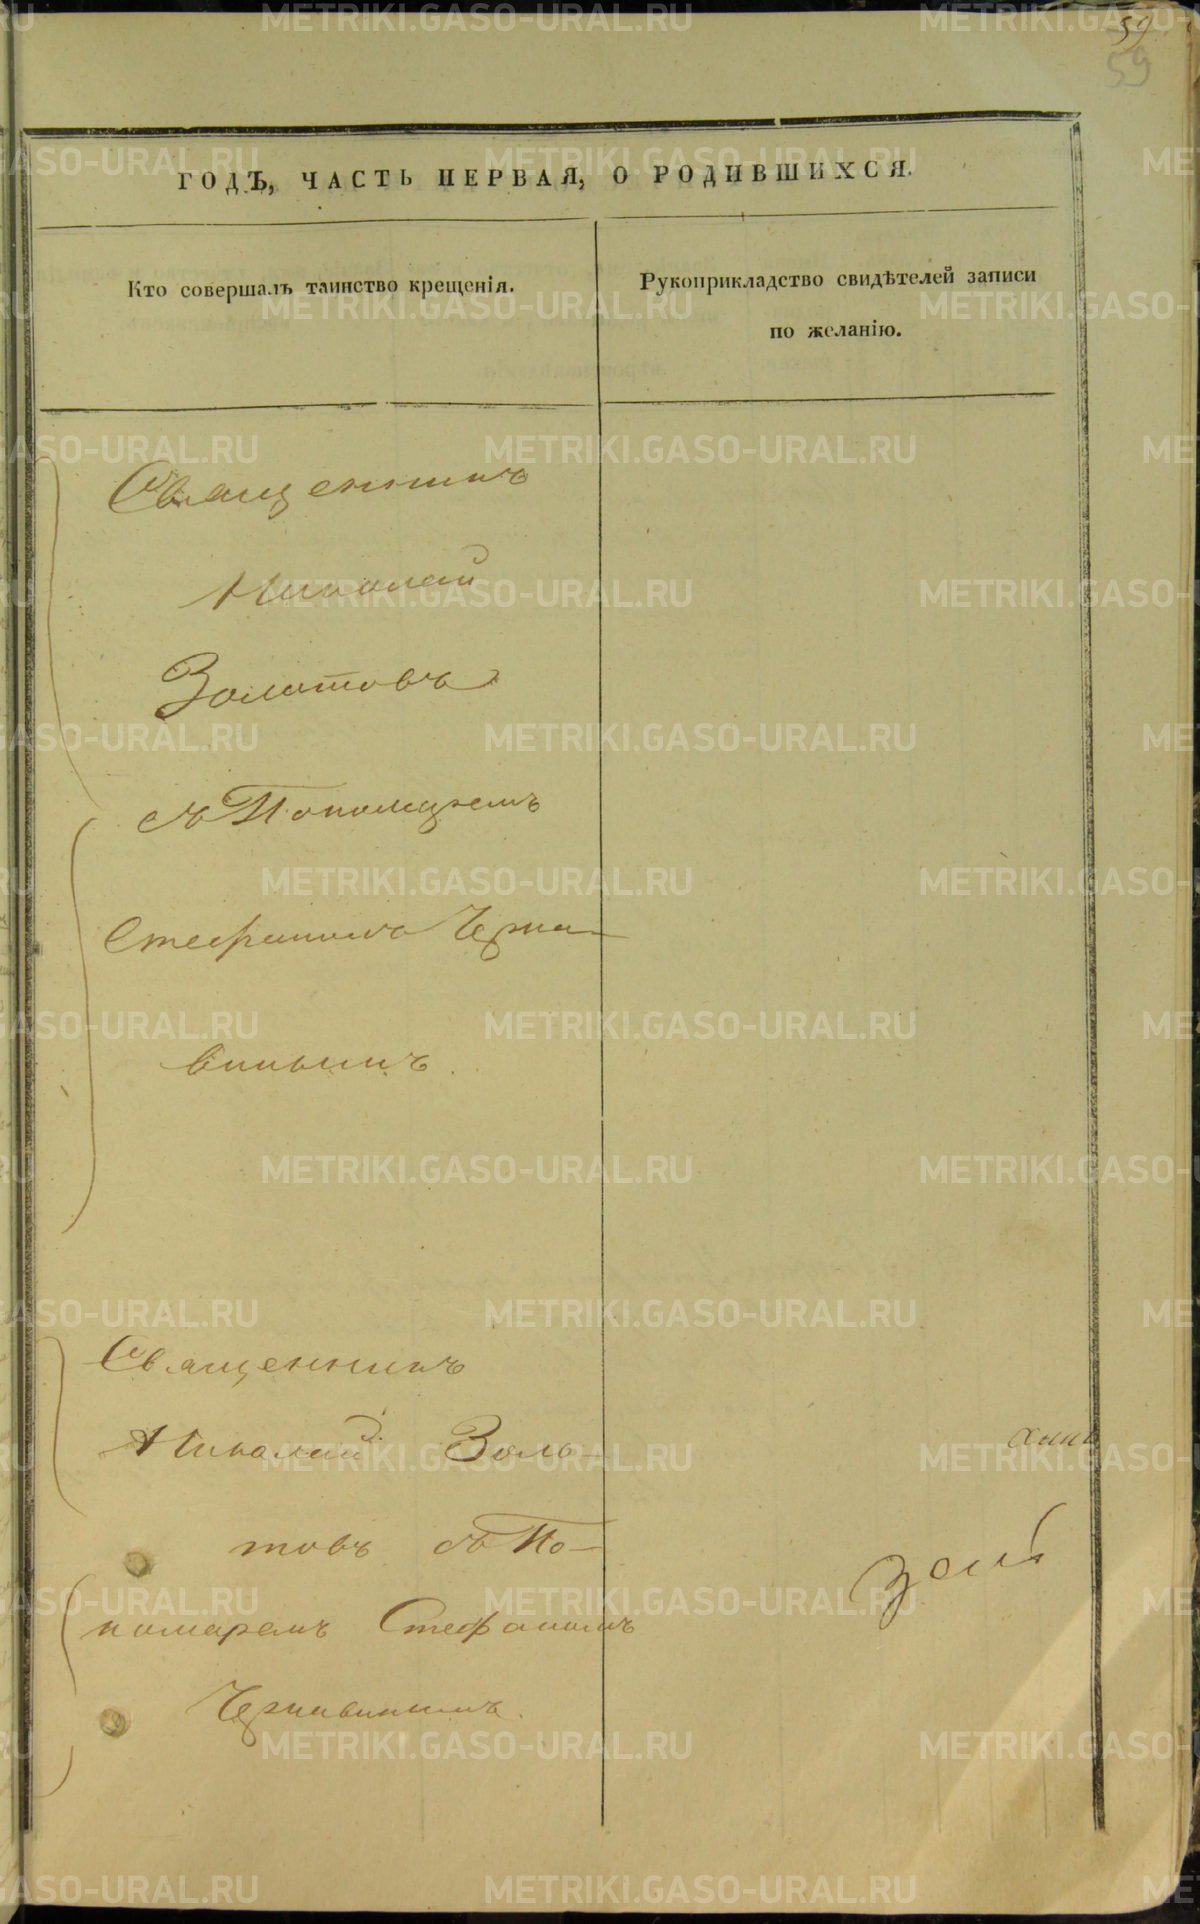 59
59
ГОДЪ, ЧАСТЬ ПЕРВАЯ, О РОДИВШИХСЯ.
Кто совершалъ таинство крещенія.
Рукоприкладство свидѣтелей записи
по желанію.
Священникъ
Николай
Золотовъ
съ Пономаремъ
Стефаномъ Черна-
винымъ.
Священникъ
Николай Золо-
товъ съ По-
номаремъ Стефаномъ
Чернавинымъ.
METRIKI.GASO-URAL.RU